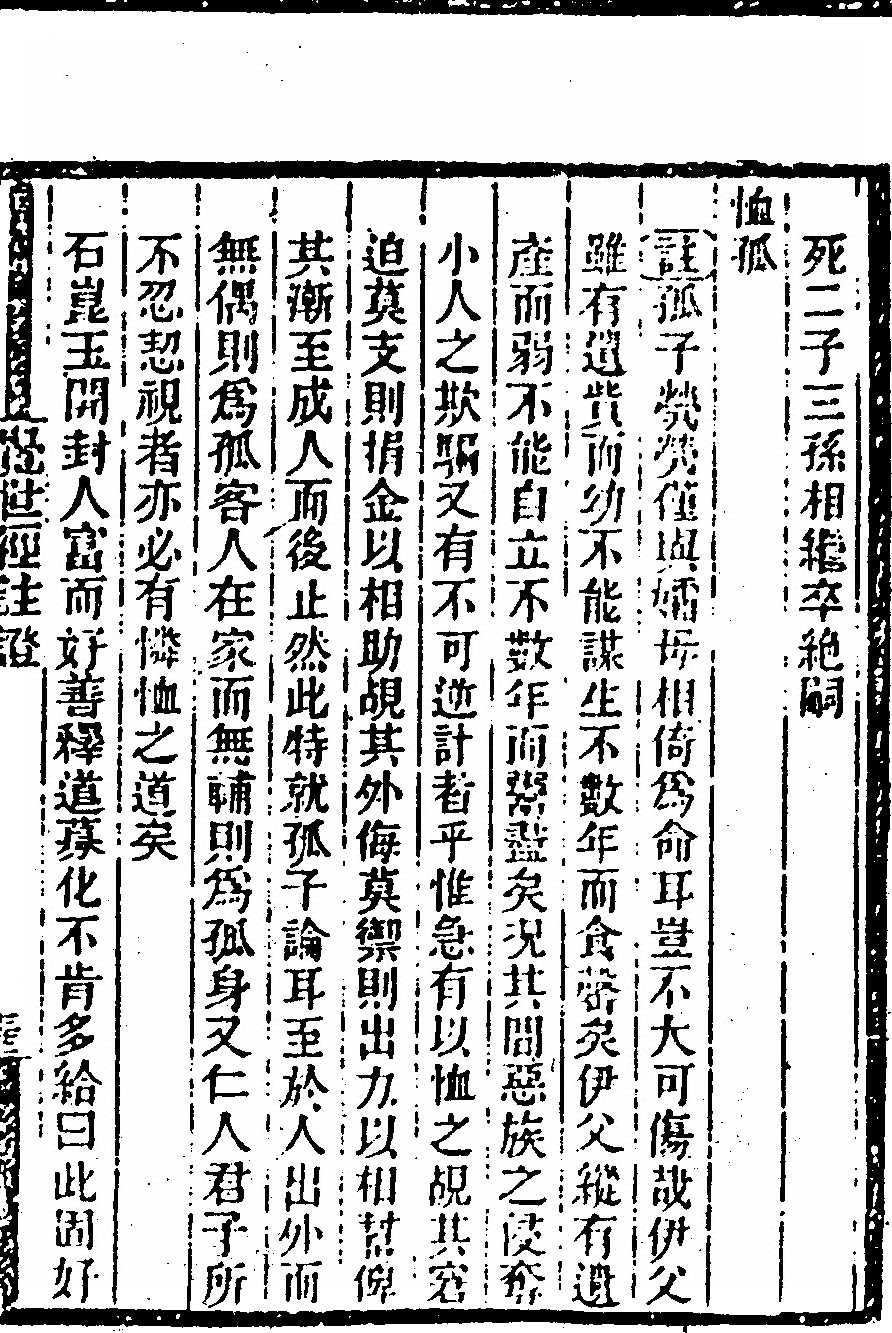 死二子三孫相繼卒絶嗣
恤孤
註孤子煢煢僅與孀母相倚爲命耳豈不大可傷哉伊父
雖有遺貲而幼不能謀生不數年而食罄矣伊父縱有遺
產而弱不能自立不數年而鬻盡矣況其間惡族之侵奪
小人之欺騙又有不可逆計者乎惟急有以恤之覩其窘
迫莫支則捐金以相助覩其外侮莫禦則出力以相幫俾
其漸至成人而後止然此特就孤子論耳至於人出外而
無偶則爲孤客人在家而無輔則爲孤身又仁人君子所
不忍恝視者亦必有憐恤之道矣
石崑玉開封人富而好善釋道募化不肯多給曰此固好
覺世經註證